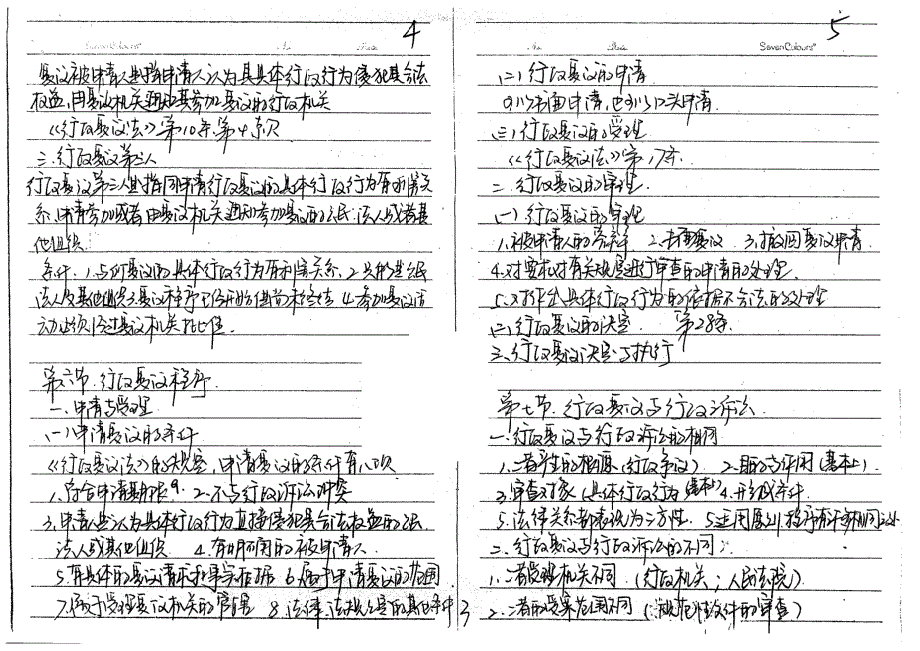 4
SevenColours
No
Date
复议被申请人是指申请人认为其具体行政行为侵犯其合法
权益,由复议机关通知其参加复议的行政机关
《行政复议法》第10条第4款
三.行政复议第三人
行政复议第三人是指同申请行政复议的具体行政行为有利害关
系,申请参加或者由复议机关通知参加复议的公民.法人或者其
他组织
条件:1.与所复议的具体行政行为有利害关系.2.必须是公民
法人及其他组织3.复议程序已经开始但尚未终结 4.参加复议活
动必须经过复议机关批准.
第六节.行政复议程序
一.申请与受理
(一)申请复议的条件
《行政复议法》的规定,申请复议的条件有八项
1.符合申请期限. 2.不与行政诉讼冲突
3.申请人是认为具体行政行为直接侵犯其合法权益的公民
法人或其他组织 4.有明确的被申请人
5.有具体的复议请求和事实依据 6.属于申请复议的范围
7.属于受理复议机关的管辖 8.法律.法规规定的其他条件
5
No
Date
SevenColours
(二)行政复议的申请
可以书面申请,也可以口头申请.
(三)行政复议的受理
《行政复议法》第17条.
二.行政复议的审理.
(一)行政复议的审理
1.被申请人的答辩 2.书面复议 3.撤回复议申请.
4.对要求对有关规定进行审查的申请的处理.
5.对作出具体行政行为的依据不合法的处理
(二)行政复议的决定. 第28条.
三.行政复议决定与执行
第七节.行政复议与行政诉讼.
一.行政复议与行政诉讼的相同
1.二者产生的根源(行政争议) 2.目的与作用(基本上).
3.审查对象(具体行政行为(基本上) 4.形成条件
5.法律关系都表现为三方性. 5.适用原则.程序有许多相同之处
二.行政复议与行政诉讼的不同:
1.二者受理机关不同.(行政机关;人民法院)
2.二者的受案范围不同(:规范性文件的审查)